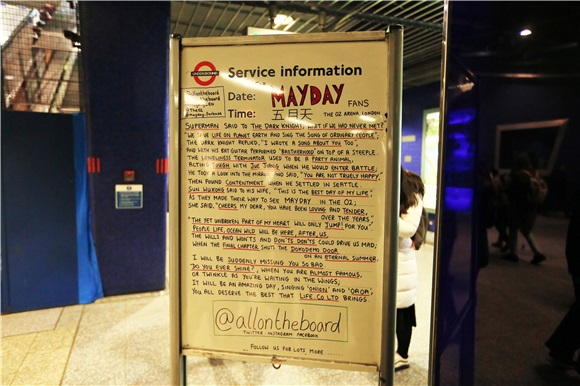 UNDERGROUND
Service information
@allontheboard
Date: MAYDAY FANS
Time: 五月天 THE O2 ARENA, LONDON
SUPERMAN SAID TO THE DARK KNIGHT, "WHAT IF WE HAD NEVER MET?
WE GIVE LIFE ON PLANET EARTH AND SING THE SONG OF ORDINARY PEOPLE".
THE DARK KNIGHT REPLIED, "I WROTE A SONG ABOUT YOU TOO",
AND WITH HIS BFF GUITAR PERFORMED "BROTHERHOOD" ON TOP OF A STEEPLE.
THE LONELINESS TERMINATOR USED TO BE A PARTY ANIMAL,
ACTING TOUGH WITH JOE TONG WHEN HE WOULD ENTER BATTLE;
HE TOOK A LOOK INTO THE MIRROR AND SAID, "YOU ARE NOT TRULY HAPPY",
THEN FOUND CONTENTMENT WHEN HE SETTLED IN SEATTLE.
SUN WUKONG SAID TO HIS WIFE, "THIS IS THE BEST DAY OF MY LIFE",
AS THEY MADE THEIR WAY TO SEE MAYDAY IN THE O2;
SHE SAID, "CHEERS MY DEAR, YOU HAVE BEEN LOVING AND TENDER,
OVER THE YEARS,
THE YET UNBROKEN PART OF MY HEART WILL ONLY JUMP! FOR YOU".
PEOPLE LIFE, OCEAN WILD WILL BE HERE, AFTER US,
THE WILLS AND WON'TS AND DON'TS DON'TS COULD DRIVE US MAD;
WHEN THE FINAL CHAPTER SHUTS THE DOKODEMO DOOR
ON AN ETERNAL SUMMER.
I WILL BE SUDDENLY MISSING YOU SO BAD.
DO YOU EVER SHINE?, WHEN YOU ARE ALMOST FAMOUS,
OR TWINKLE AS YOU'RE WAITING IN THE WINGS,
IT WILL BE AN AMAZING DAY, SINGING 'ONION' AND 'OAOA',
YOU ALL DESERVE THE BEST THAT LIFE CO LTD BRINGS.
@allontheboard
TWITTER INSTAGRAM FACEBOOK
FOLLOW US FOR LOTS MORE ......